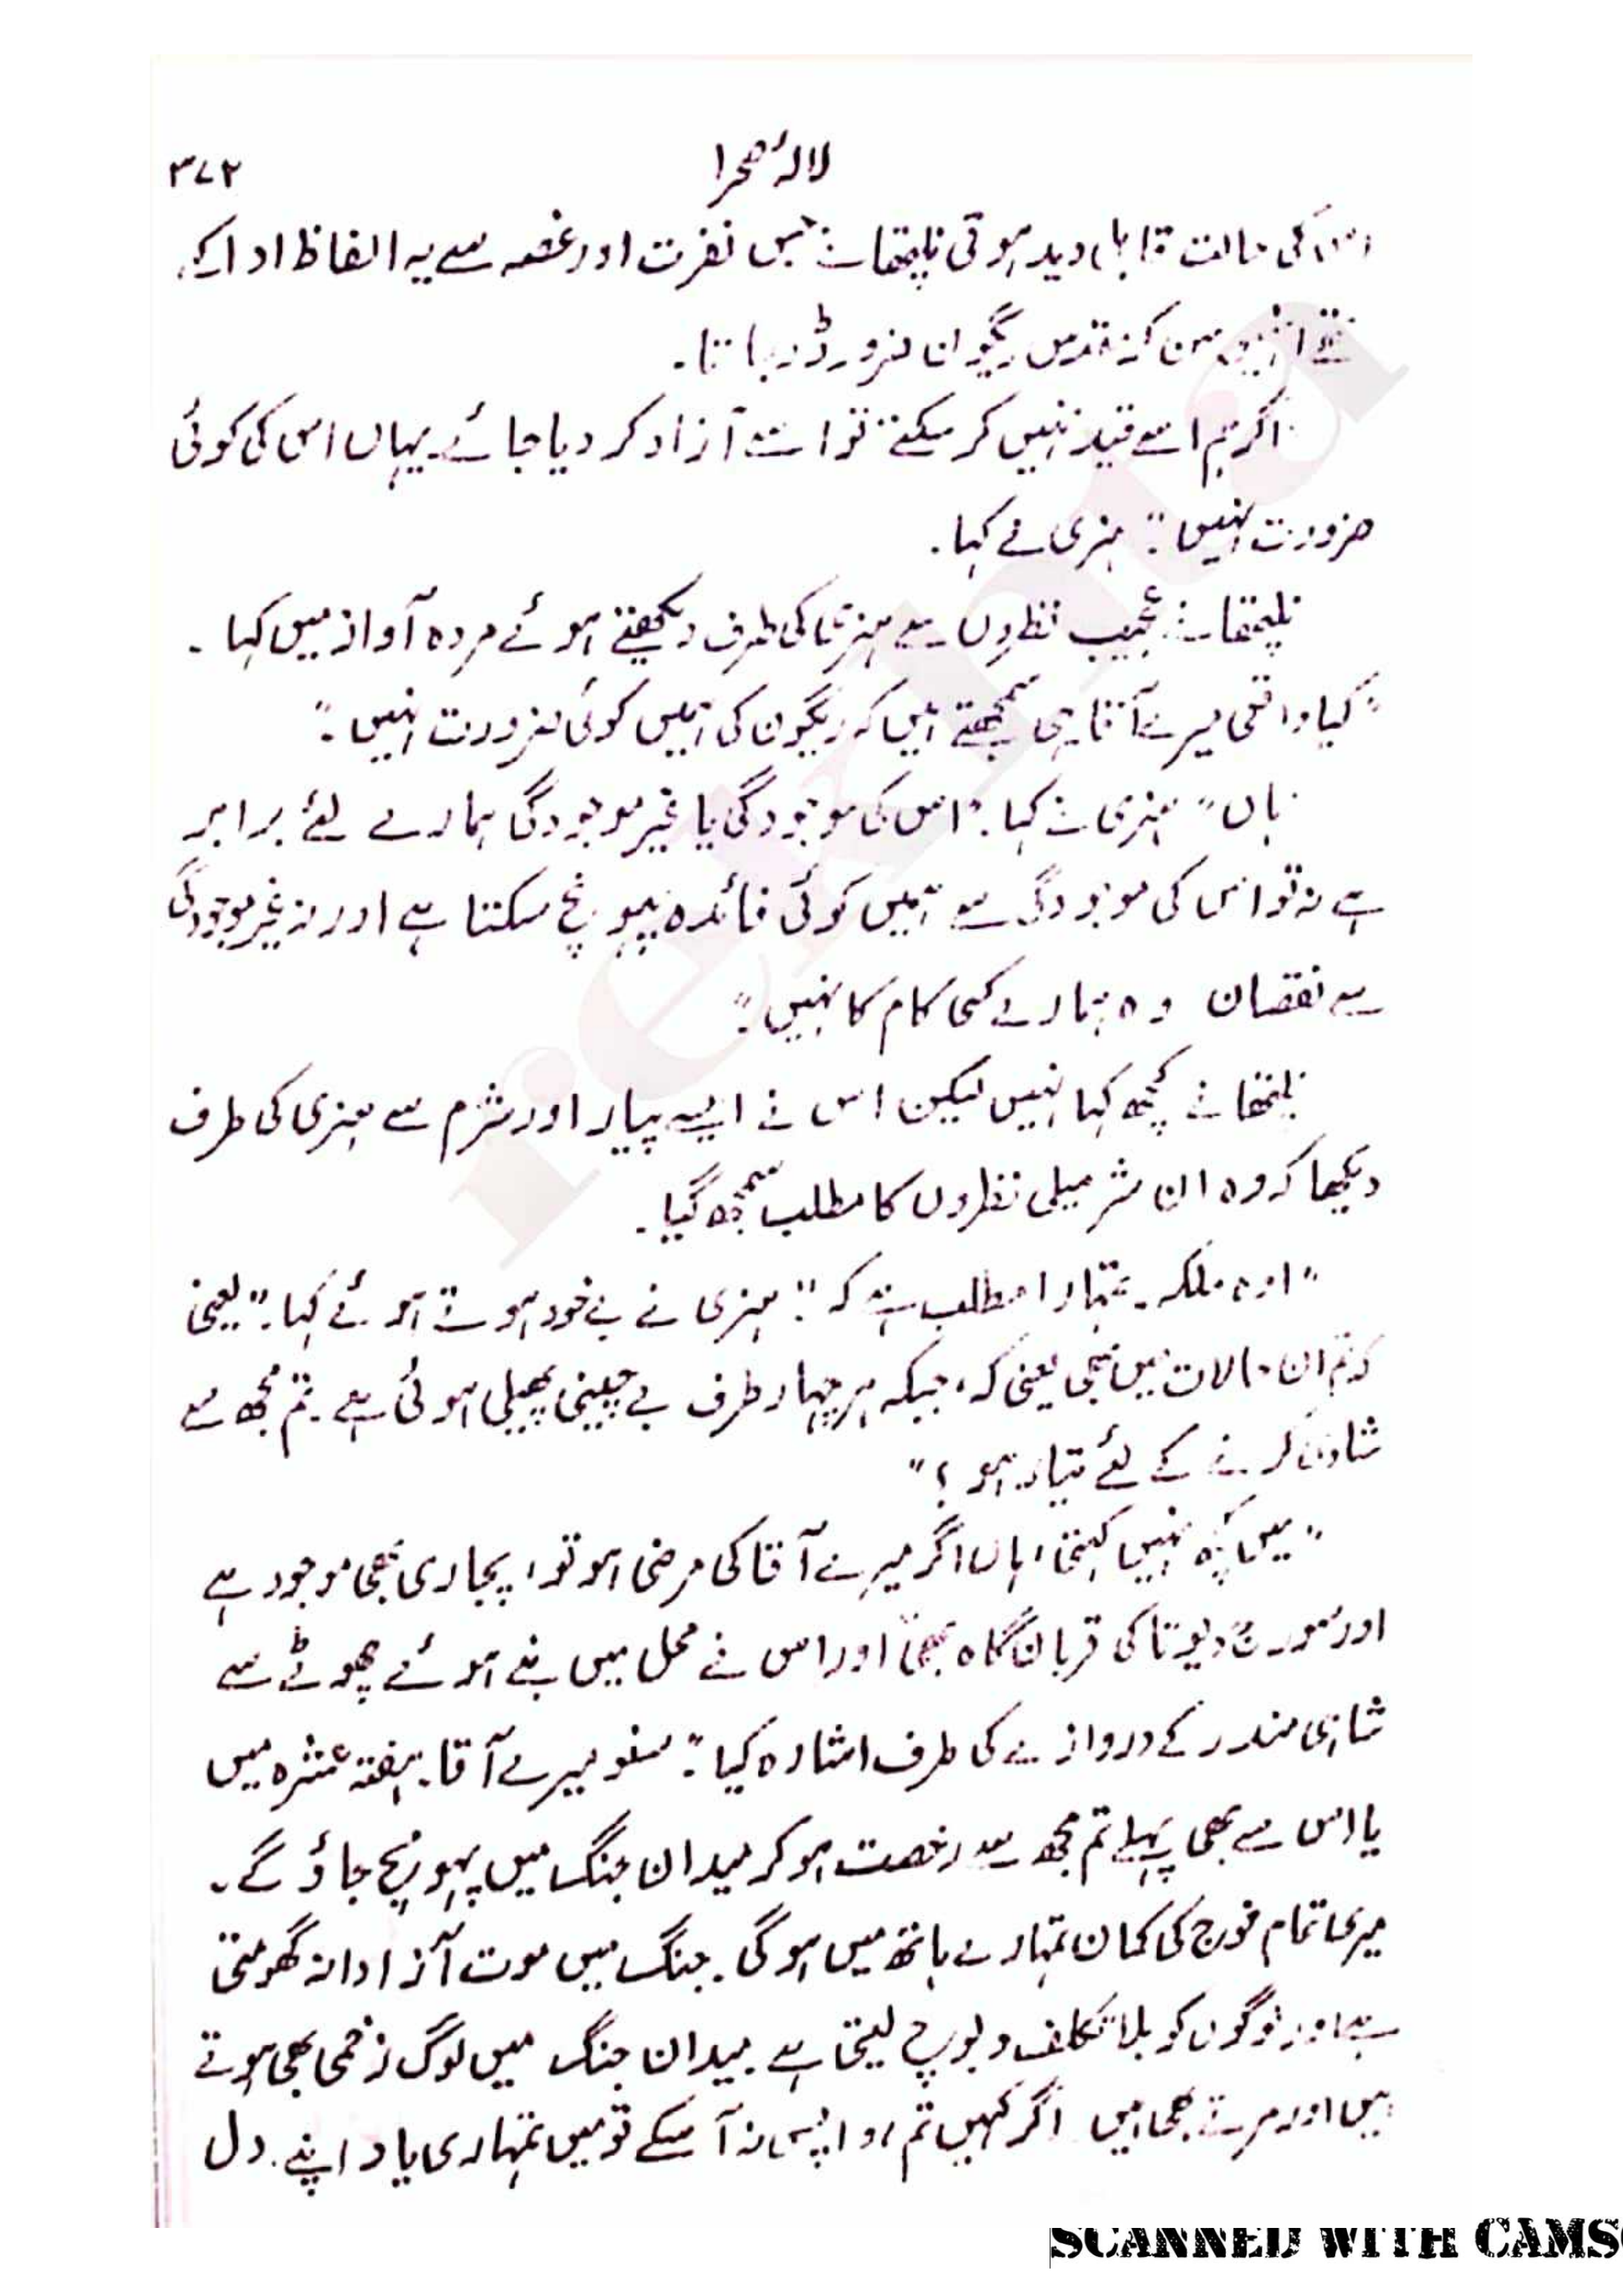 لالۂ صحرا ۳۷۲
اس کی حالت قابل دید ہوتی نلپتھانے جس نفرت اور غصہ سے یہ الفاظ ادا کئے
تھے انہیں سن کر مقدس ریگون ضرور ڈر جاتا۔
اگر ہم اسے قید نہیں کر سکتے تو اسے آزاد کر دیا جائے۔ یہاں اس کی کوئی
ضرورت نہیں" ہنری نے کہا۔
نلپتھانے عجیب نظروں سے ہنری کی طرف دیکھتے ہوئے مردہ آواز میں کہا۔
"کیا واقعی میرے آقا یہی سمجھتے ہیں کہ ریگون کی ہمیں کوئی ضرورت نہیں۔"
ہاں" ہنری نے کہا۔ "اس کی موجودگی یا غیر موجودگی ہمارے لئے برابر
ہے نہ تو اس کی موجودگی سے ہمیں کوئی فائدہ پہونچ سکتا ہے اور نہ غیر موجودگی
سے نقصان وہ ہمارے کسی کام کا نہیں۔"
نلپتھانے کچھ کہا نہیں لیکن اس نے ایسے پیار اور شرم سے ہنری کی طرف
دیکھا کہ وہ ان شرمیلی نظروں کا مطلب سمجھ گیا۔
"اوہ ملکہ۔ تمہارا مطلب ہے کہ" ہنری نے بے خود ہوتے ہوئے کہا۔ "یعنی
کہ تم ان حالات میں بھی یعنی کہ، جبکہ ہر چہار طرف بے چینی پھیلی ہوئی ہے۔ تم مجھ سے
شادی کرنے کے لئے تیار ہو؟"
"میں کچھ نہیں کہتی، ہاں اگر میرے آقا کی مرضی ہو تو، پجاری بھی موجود ہے
اور سورج دیوتا کی قربان گاہ بھی" اور اس نے محل میں بنے ہوئے چھوٹے سے
شاہی مندر کے دروازے کی طرف اشارہ کیا۔ "سنو میرے آقا۔ ہفتہ عشرہ میں
یا اس سے بھی پہلے تم مجھ سے رخصت ہو کر میدان جنگ میں پہونچ جاؤ گے۔
میری تمام فوج کی کمان تمہارے ہاتھ میں ہو گی۔ جنگ میں موت آزادانہ گھومتی
ہے اور لوگوں کو بلا تکلف دبوچ لیتی ہے۔ میدان جنگ میں لوگ زخمی بھی ہوتے
ہیں اور مرتے بھی ہیں۔ اگر کہیں تم، واپس نہ آ سکے تو میں تمہاری یاد اپنے دل
SCANNED WITH CAMS